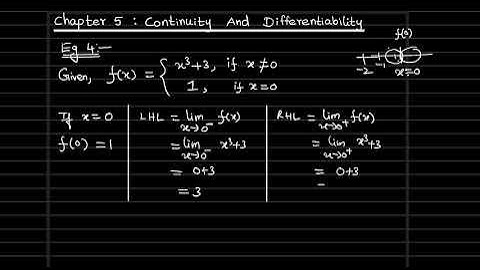 Chapter 5 : Continuity And Differentiability
Eg 4:-
f(0)
Given, f(x) = { x³+3, if x≠0
1, if x=0
-2 -1 x=0
If x=0
f(0) = 1
LHL = lim x→0⁻ f(x)
= lim x→0⁻ x³+3
= 0+3
= 3
RHL = lim x→0⁺ f(x)
= lim x→0⁺ x³+3
= 0+3
=